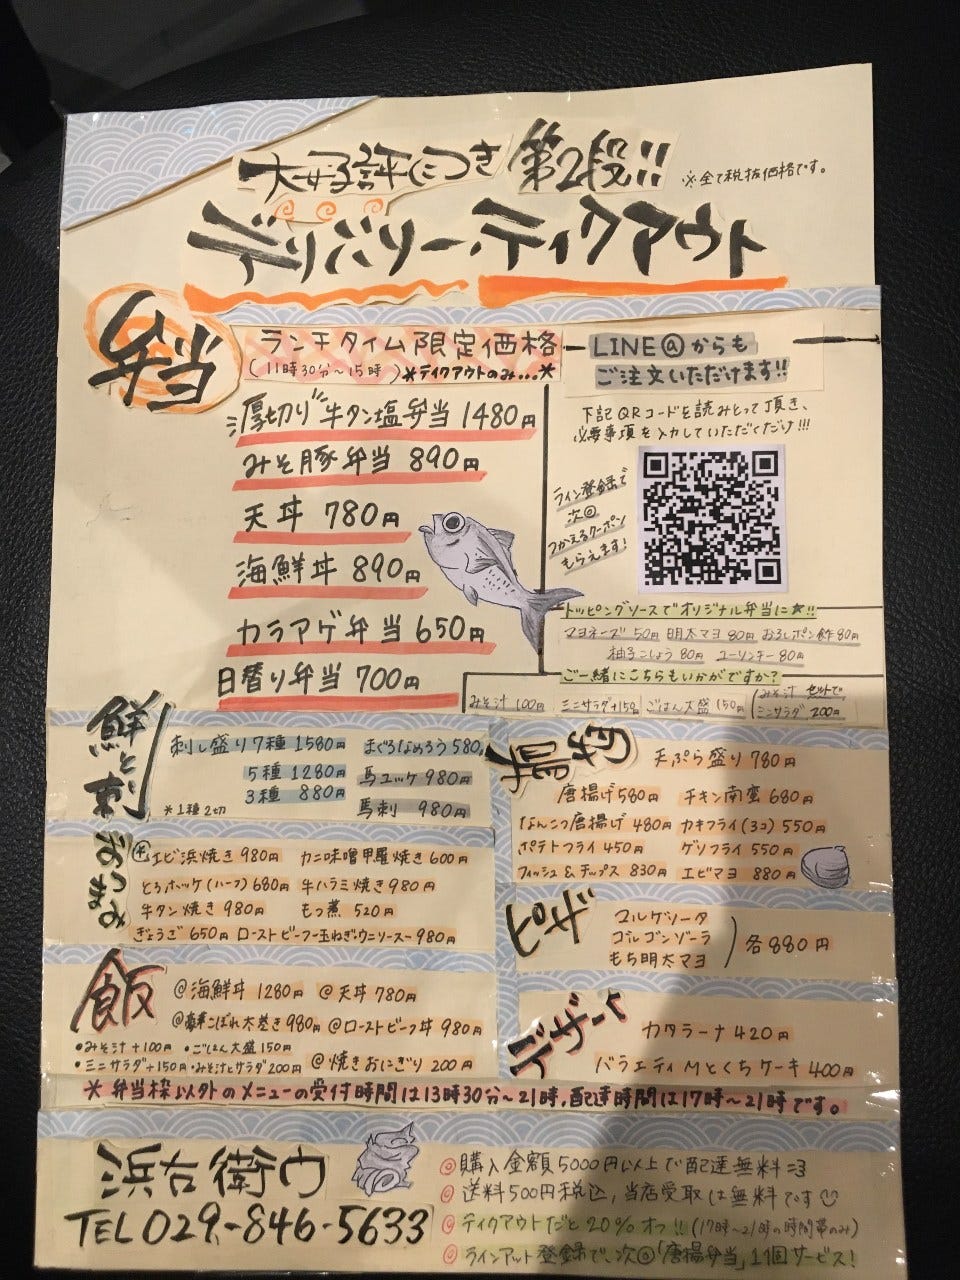 大好評につき 第2段!!
※全て税抜価格です。
デリバリー、テイクアウト
弁当
ランチタイム限定価格
(11時30分～15時) *テイクアウトのみ...*
厚切り牛タン塩弁当 1480円
みそ豚弁当 890円
天丼 780円
海鮮丼 890円
カラアゲ弁当 650円
日替り弁当 700円
LINE@からも
ご注文いただけます!!
下記QRコードを読みとって頂き、
必要事項を入力していただくだけ!!!
ライン登録で
次回
つかえるクーポン
もらえます!
トッピングソースでオリジナル弁当に★!!
マヨネーズ 50円 明太マヨ 80円 おろしポン酢 80円
柚子こしょう 80円 ユーリンチー 80円
ご一緒にこちらもいかがですか?
みそ汁 100円 ミニサラダ+150円 ごはん大盛 150円
みそ汁 セットで
ミニサラダ 200円
鮮と刺
刺し盛り7種 1580円
5種 1280円
3種 880円
*1種2切
まぐろなめろう 580円
馬ユッケ 980円
馬刺 980円
おつまみ
エビ浜焼き 980円 カニ味噌甲羅焼き 600円
とろホッケ(ハーフ) 680円 牛ハラミ焼き 980円
牛タン焼き 980円 もつ煮 520円
ぎょうざ 650円 ローストビーフー玉ねぎ・ウニソースー 980円
飯
@海鮮丼 1280円 @天丼 780円
@豪華こぼれ太巻き 980円 @ローストビーフ丼 980円
・みそ汁+100円 ・ごはん大盛 150円
・ミニサラダ+150円 ・みそ汁とサラダ 200円
@焼きおにぎり 200円
天ぷら盛り 780円
唐揚げ 580円 チキン南蛮 680円
なんこつ唐揚げ 480円 カキフライ(3コ) 550円
ポテトフライ 450円 ゲソフライ 550円
フィッシュ&チップス 830円 エビマヨ 880円
ピザ
マルゲリータ
ゴルゴンゾーラ
もち明太マヨ
各880円
デザート
カタラーナ 420円
バラエティMとくちケーキ 400円
* 弁当枠以外のメニューの受付時間は13時30分～21時,配達時間は17時～21時です。
浜右衛门
TEL 029-846-5633
◎購入金額5000円以上で配達無料=3
◎送料500円税込,当店受取は無料です
◎テイクアウトだと20%オフ!!(17時～21時の時間帯のみ)
◎ラインアット登録で、次回「唐揚弁当」1個サービス!